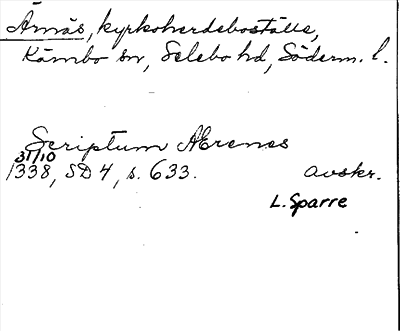 Ärnäs, kyrkoherdeboställe,
Kärnbo sn, Selebo hd, Söderm. l.
Scriptum Ærenes
31/10
1338, SD 4, s. 633. avskr.
L. Sparre